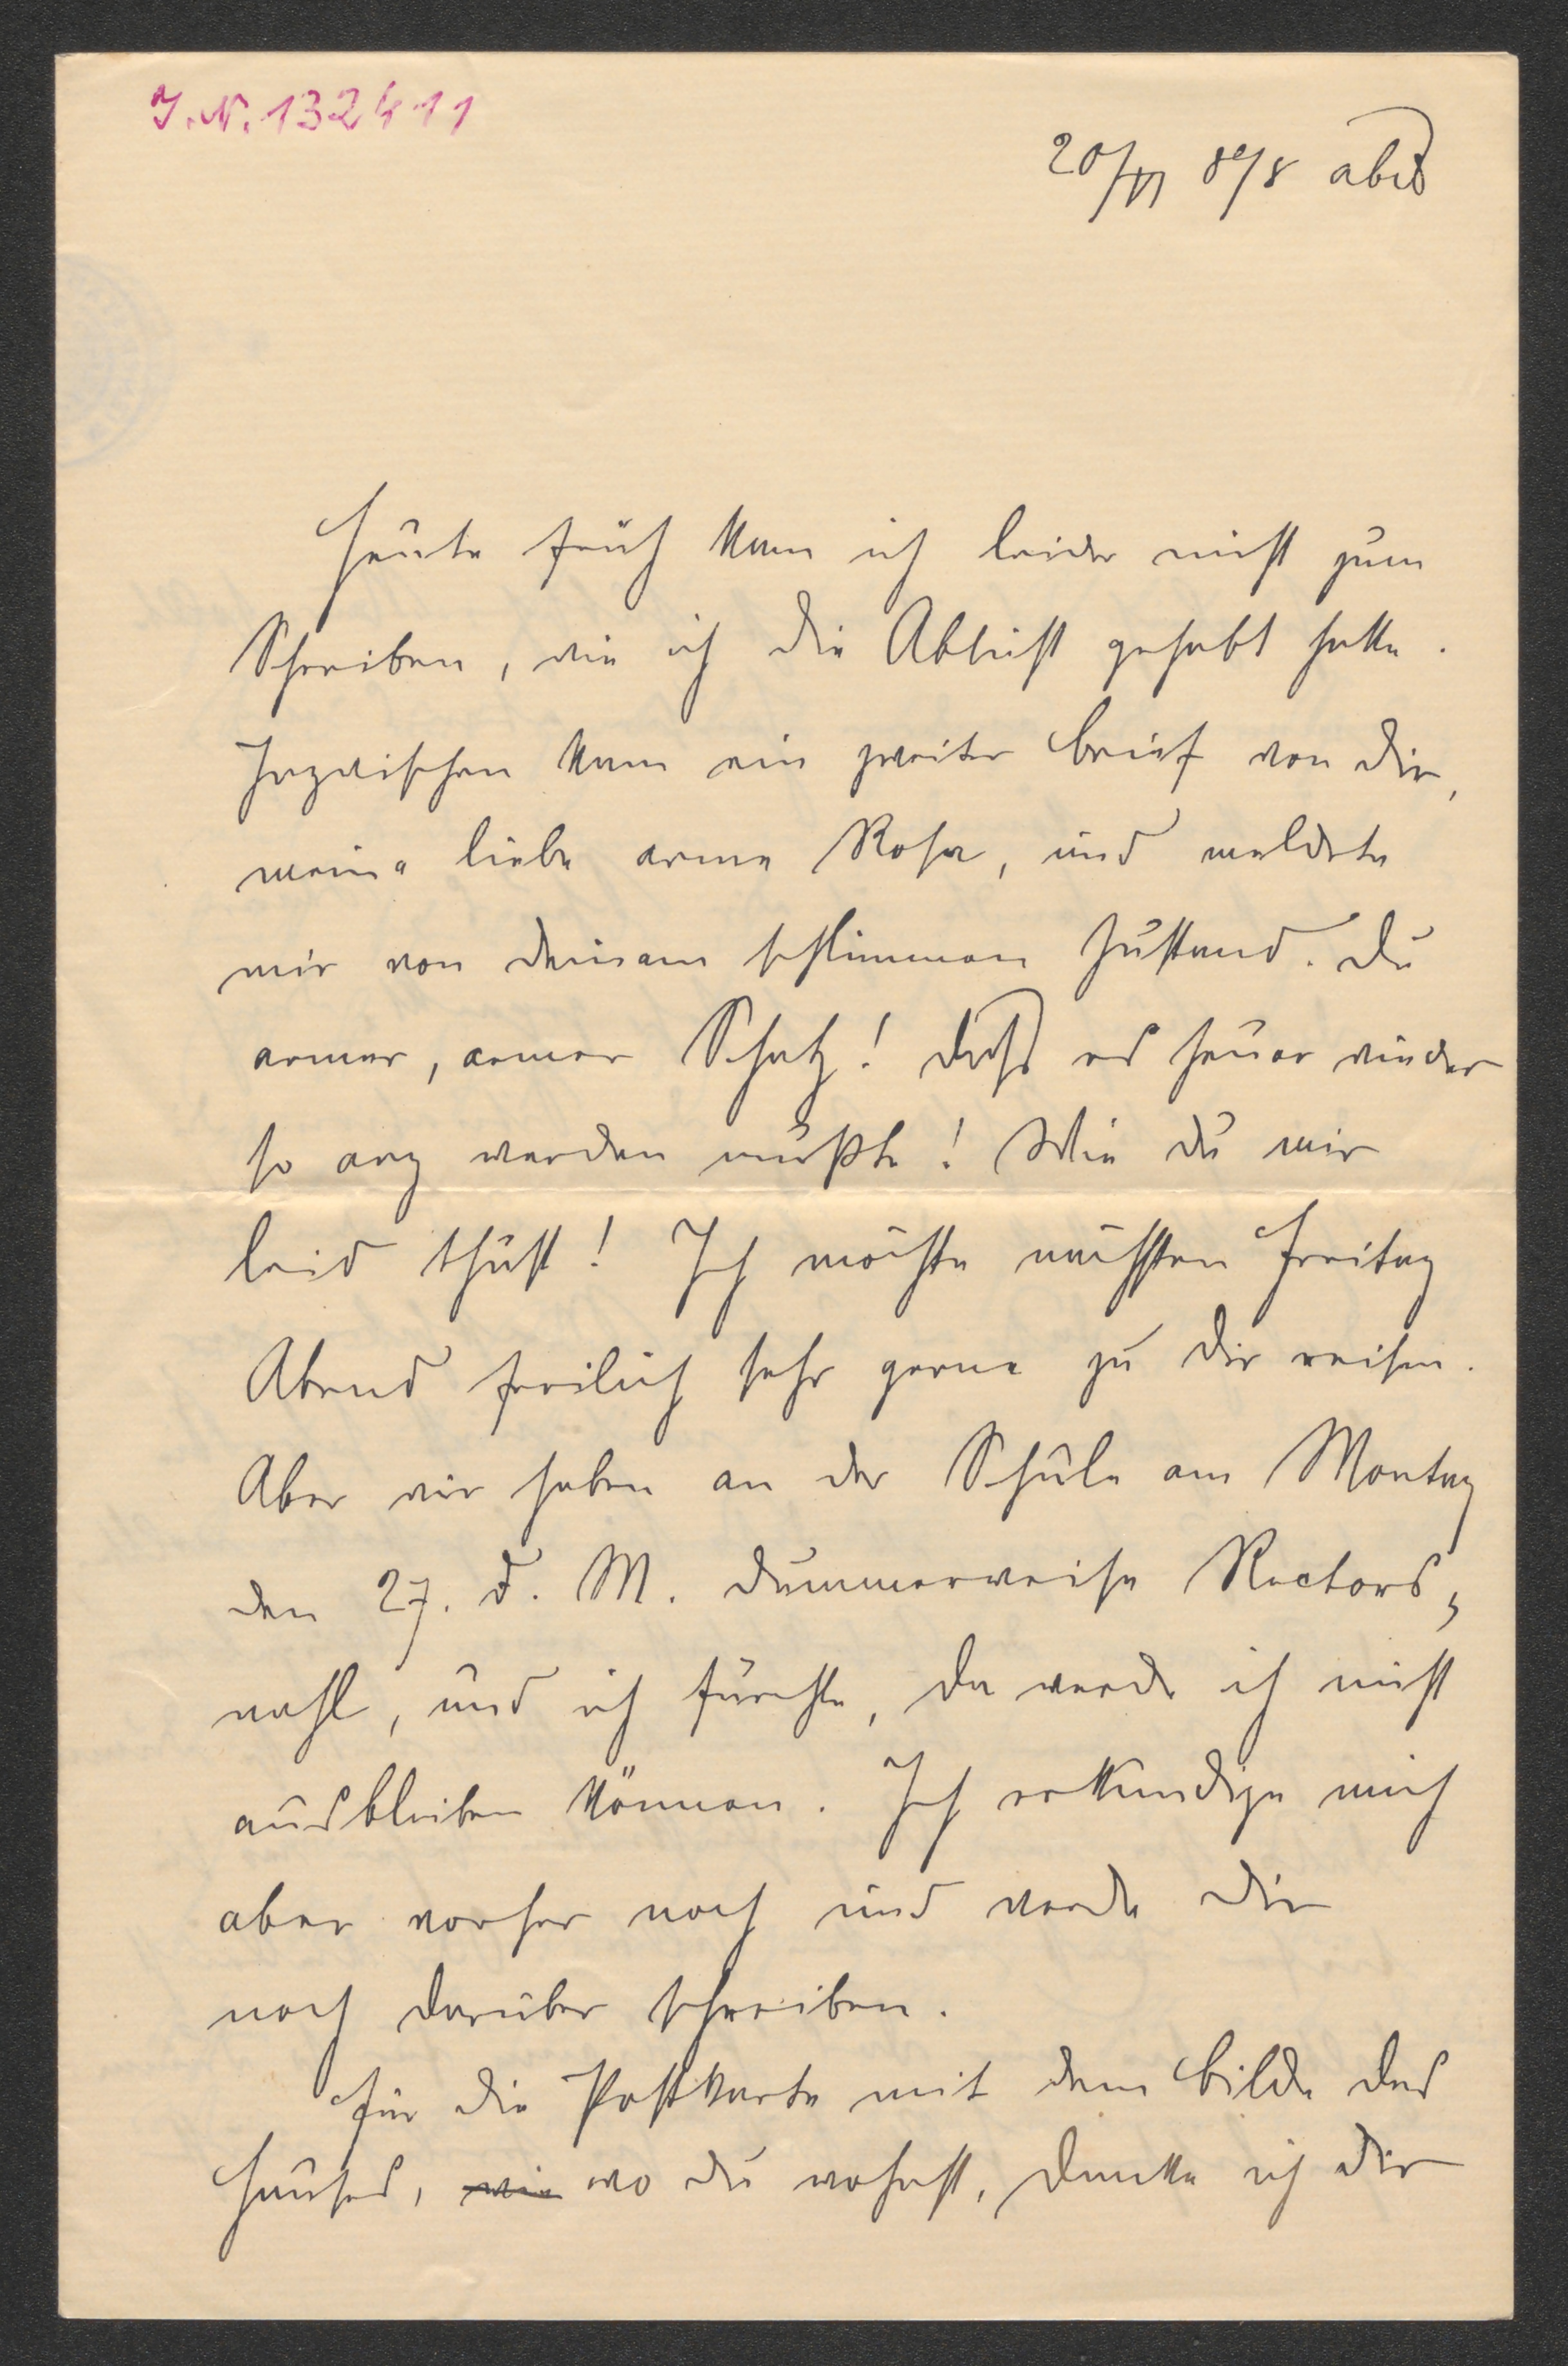 J.N. 132411
20/VI 8/8 abds
Heute früh kam ich leider nicht zum
Schreiben, wie ich die Absicht gehabt hatte.
Inzwischen kam ein zweiter Brief von dir,
meine liebe arme Rosa, und meldete
mir von deinem schlimmen Zustand. Du
armer, armer Schatz! Dass es heuer wieder
so arg werden mußte! Wie du mir
leid thust! Ich möchte nächsten Freitag
Abend freilich sehr gerne zu dir reisen.
Aber wir haben an der Schule am Montag
den 27. d. M. dummerweise Rectors-
wahl, und ich fürchte, da werde ich nicht
ausbleiben können. Ich erkundige mich
aber vorher noch und werde dir
noch darüber schreiben.
Für die Postkarte mit dem Bilde des
Hauses, wie wo du wohnst, danke ich dir